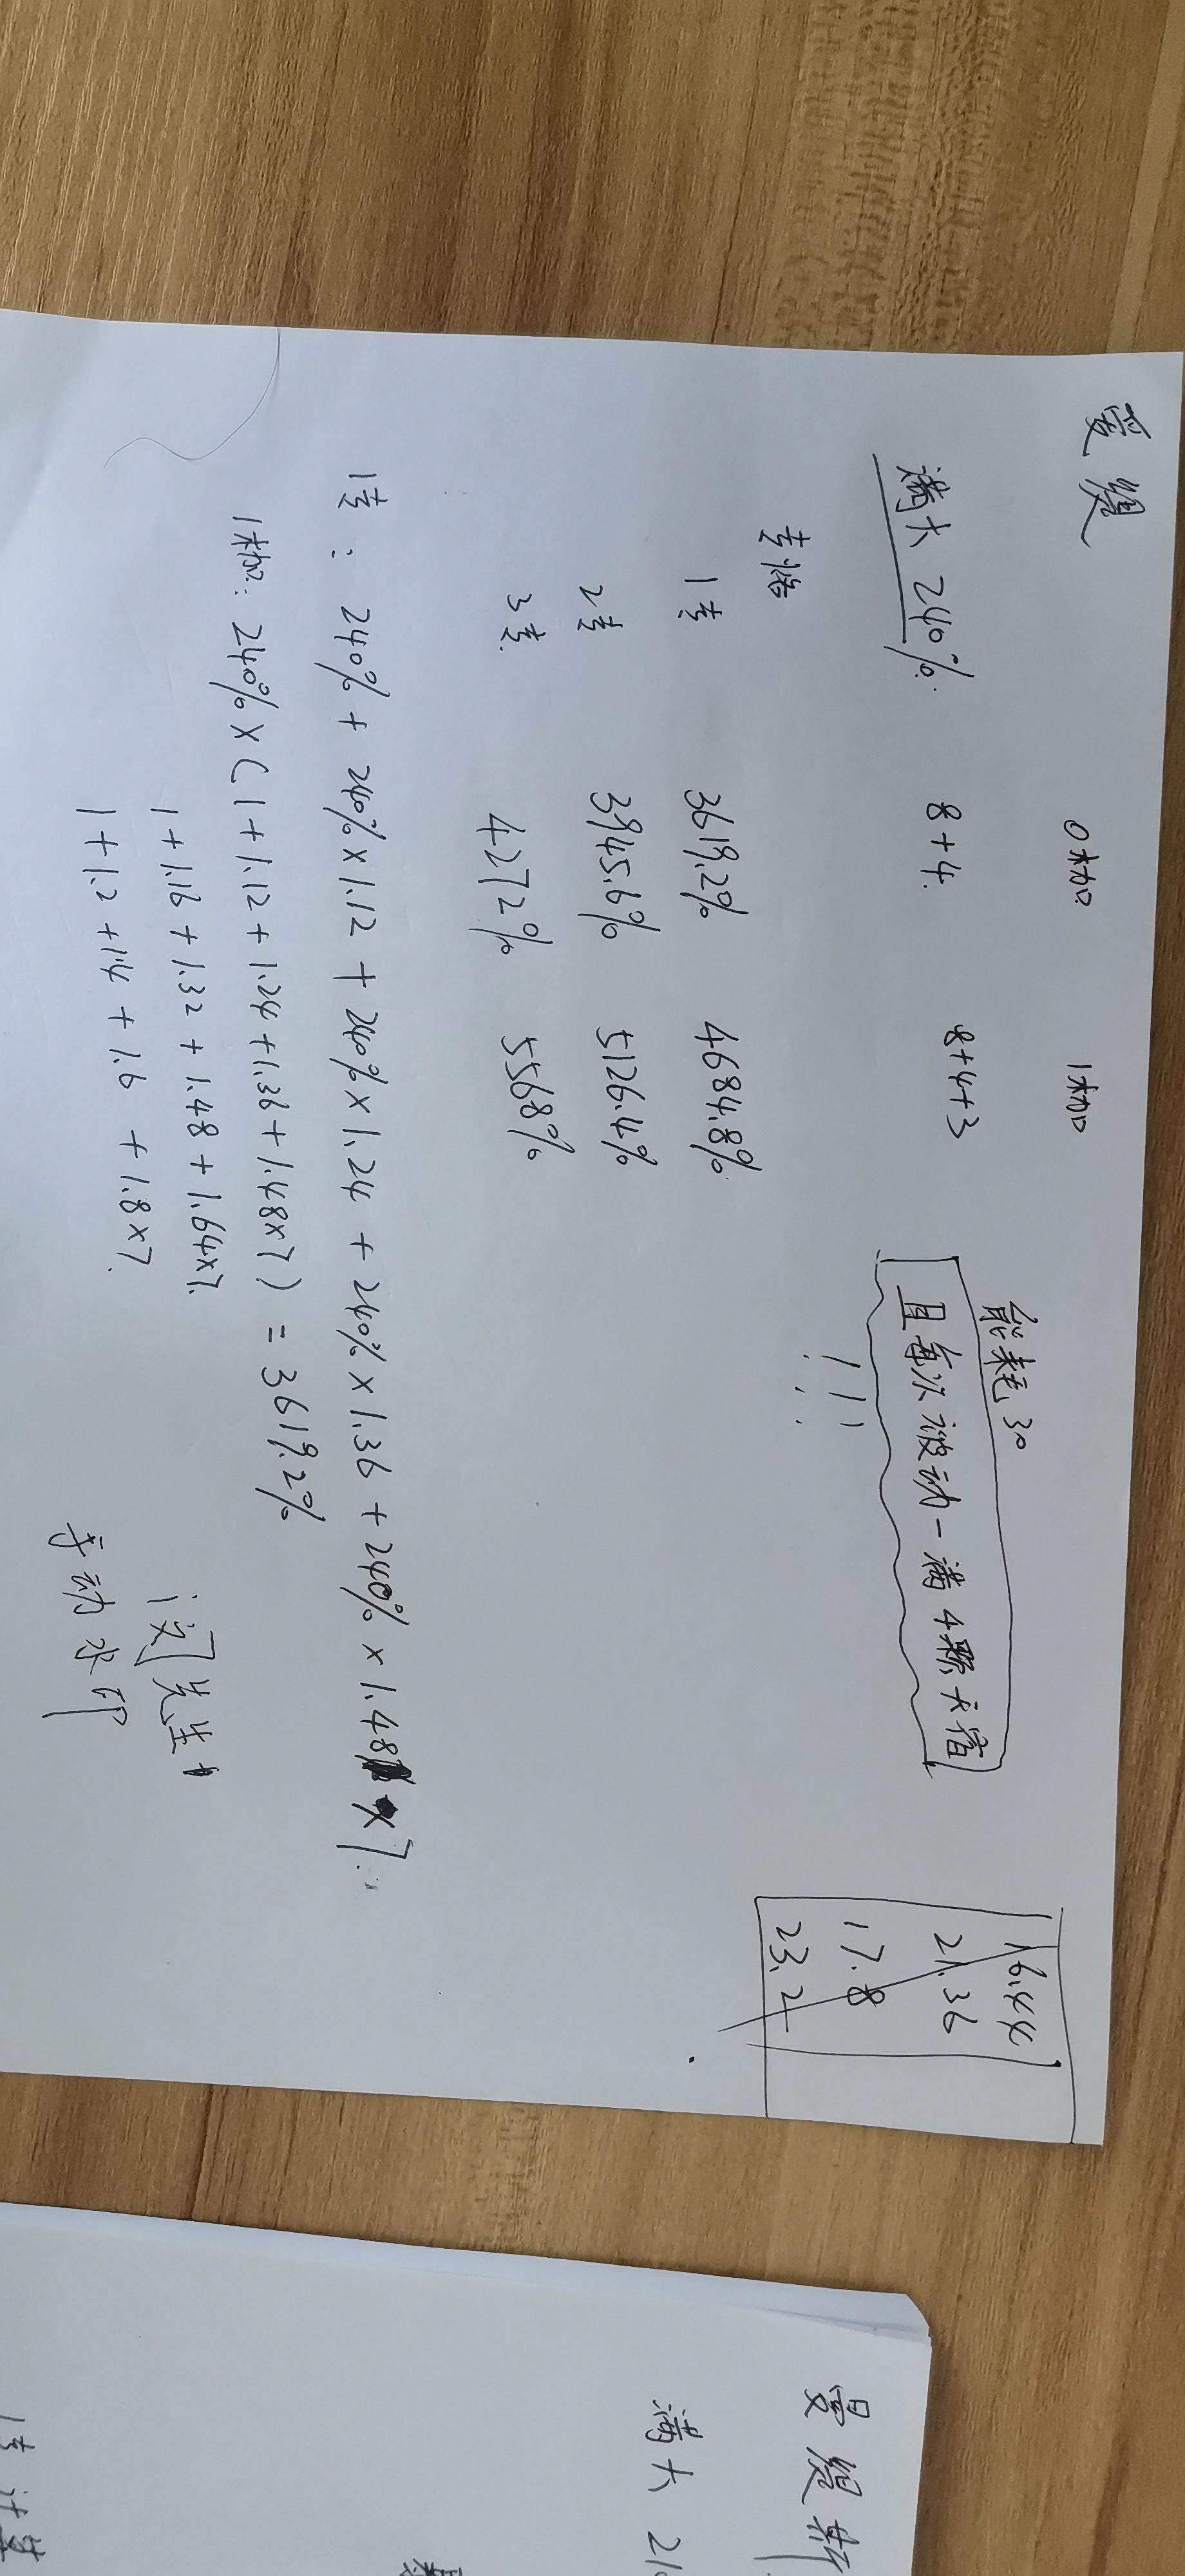 爱缇
0栖 1栖
能耗30
满大 240%. 8+4. 8+4+3
且每次被动一满4颗天宿
!!!
专悟
1专 3619.2% 4684.8%
2专 3945.6% 5126.4%
3专. 4272% 5568%
16.44
21.36
17.8
23.2
1专: 240% + 240%×1.12 + 240%×1.24 + 240%×1.36 + 240%×1.48×7
240%×(1+1.12+1.24+1.36+1.48×7) = 3619.2%
1+1.16+1.32+1.48+1.64×7.
1+1.2+1.4+1.6+1.8×7.
先生
手动水印
曼缇斯
满大 21
1专 计算